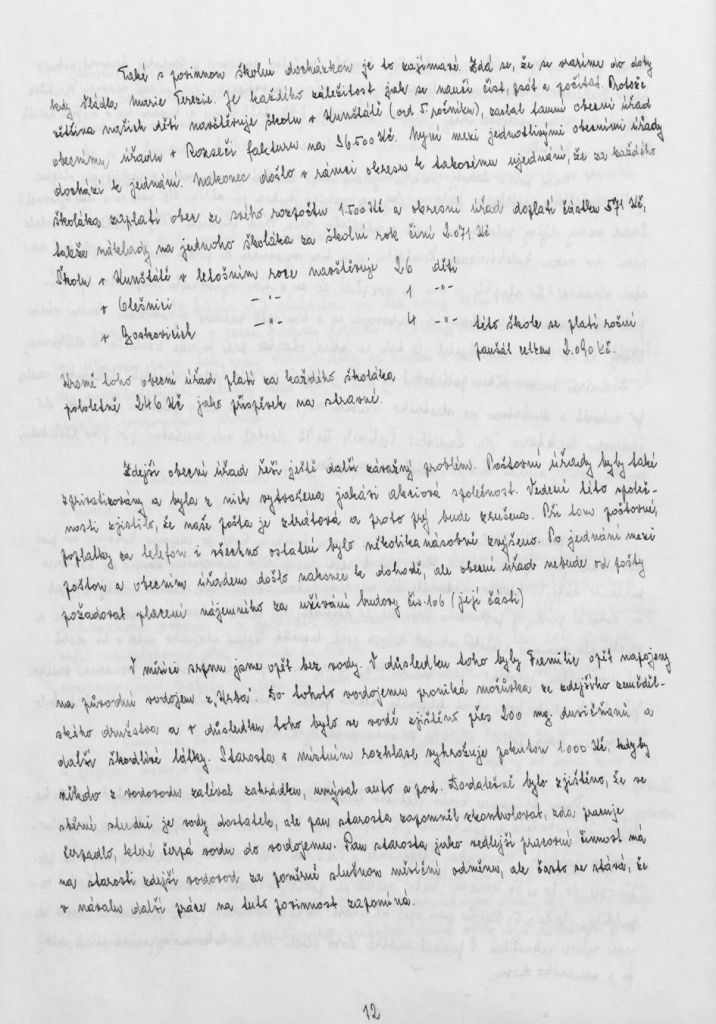 Také s povinnou školní docházkou je to zajímavé. Zdá se, že se vracíme do doby
kdy vládla Marie Terezie. Je každého záležitost jak se naučí číst, psát a počítat. Protože
většina našich dětí navštěvuje školu v Kunštátě (od 5 ročníku), zaslal tamní obecní úřad
obecnímu úřadu v Rozseči fakturu na 36.500 Kč. Nyní mezi jednotlivými obecními úřady
dochází k jednání. Nakonec došlo v rámci okresu k takovému ujednání, že za každého
školáka zaplatí obec ze svého rozpočtu 1.500 Kč a okresní úřad doplatí částku 571 Kč,
takže náklady na jednoho školáka za školní rok činí 2.071 Kč
Školu v Kunštátě v letošním roce navštěvuje 26 dětí
v Olešnici —"— 1 —"—
v Boskovicích —"— 4 —"— této škole se platí roční
paušál celkem 2.090 Kč.
Kromě toho obecní úřad platí za každého školáka
pololetně 246 Kč jako příspěvek na stravné.
Zdejší obecní úřad řeší ještě další závažný problém. Poštovní úřady byly také
zprivatizovány a byla z nich vytvořena jakási akciová společnost. Vedení této společ-
nosti zjistilo, že naše pošta je ztrátová a proto prý bude zrušena. Při tom poštovní,
poplatky za telefon i všechno ostatní bylo několikanásobně zvýšeno. Po jednání mezi
poštou a obecním úřadem došlo nakonec k dohodě, ale obecní úřad nebude od pošty
požadovat placení nájemného za užívání budovy čís. 106 (její části)
V měsíci srpnu jsme opět bez vody. V důsledku toho byly Fremilie opět napojeny
na původní vodojem z „Vrba". Do tohoto vodojemu proniká močůvka ze zdejšího zeměděl-
ského družstva a v důsledku toho bylo ve vodě zjištěno přes 200 mg. dusičnanů a
další škodlivé látky. Starosta v místním rozhlase vyhrožuje pokutou 1.000 Kč, kdyby
někdo z vodovodu zaléval zahrádku, umýval auto a pod. Dodatečně bylo zjištěno, že ve
sběrné studni je vody dostatek, ale pan starosta zapomněl zkontrolovat, zda pracuje
čerpadlo, které čerpá vodu do vodojemu. Pan starosta jako vedlejší pracovní činnost má
na starosti zdejší vodovod za poměrně slušnou měsíční odměnu, ale často se stává, že
v návalu další práce na tuto povinnost zapomíná.
12